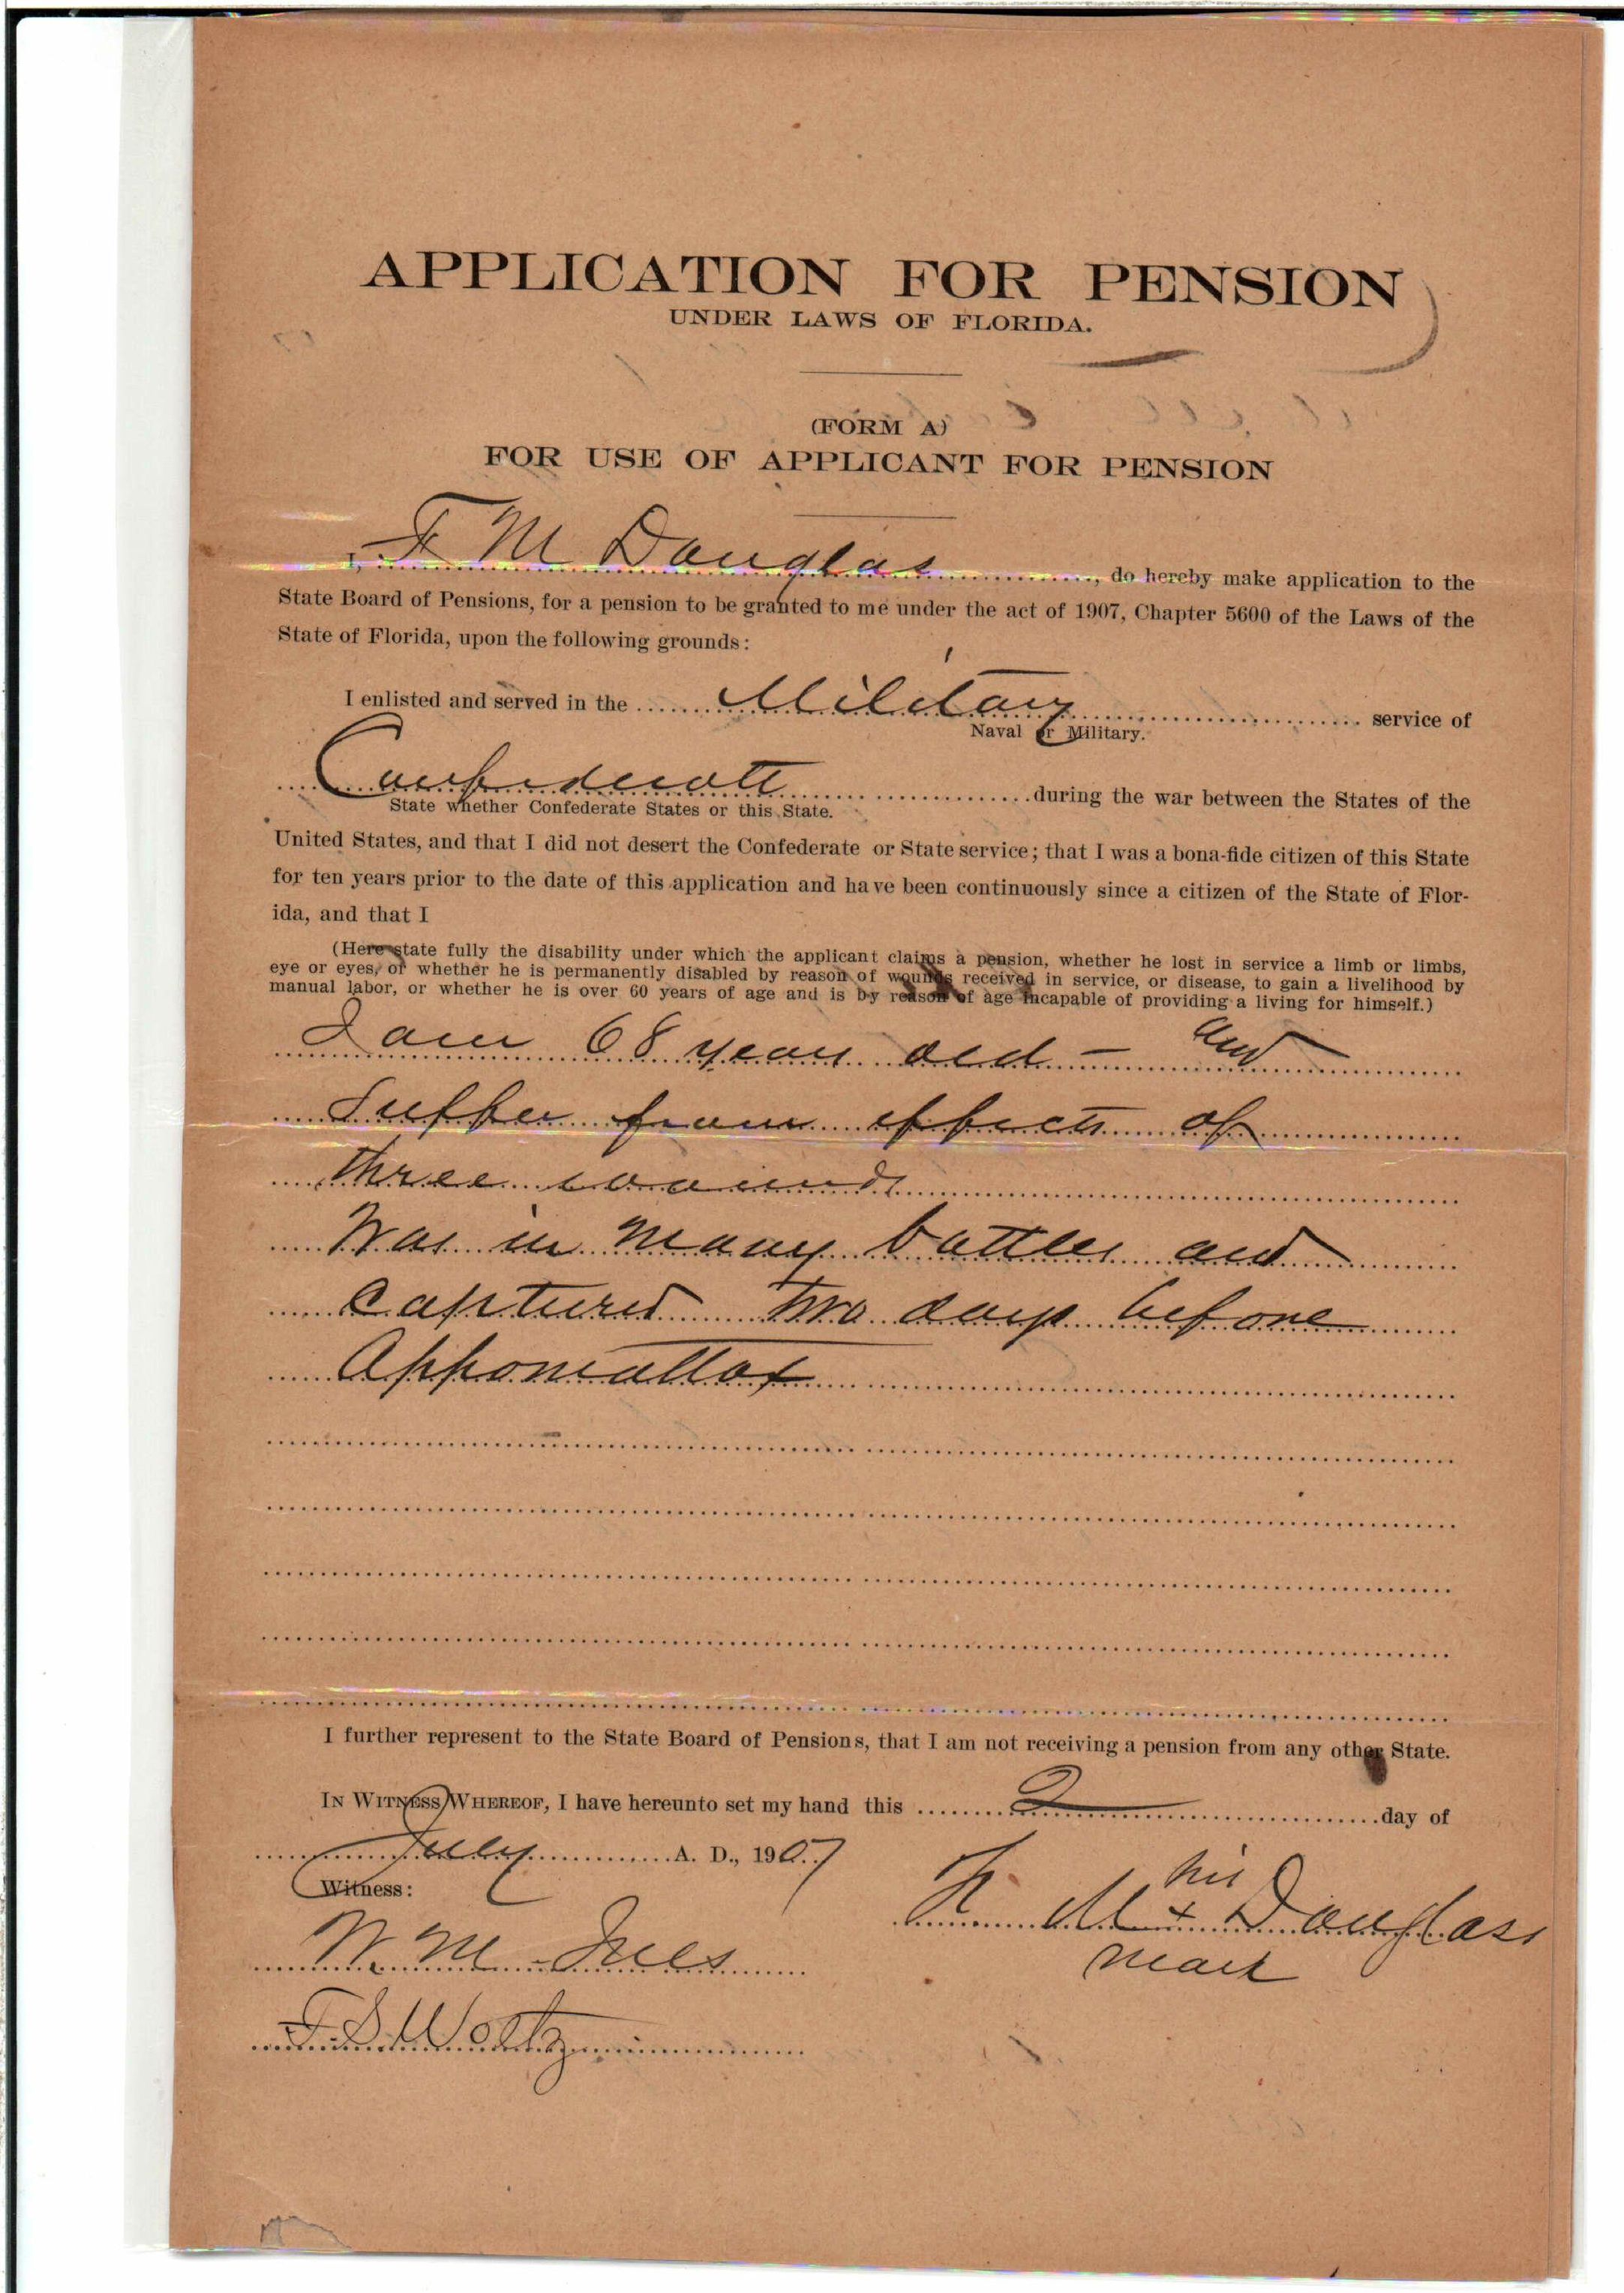 APPLICATION FOR PENSION
UNDER LAWS OF FLORIDA.
(FORM A)
FOR USE OF APPLICANT FOR PENSION
I, F M Douglas, do hereby make application to the
State Board of Pensions, for a pension to be granted to me under the act of 1907, Chapter 5600 of the Laws of the
State of Florida, upon the following grounds:
I enlisted and served in the Military service of
Naval or Military.
Confederate during the war between the States of the
State whether Confederate States or this State.
United States, and that I did not desert the Confederate or State service; that I was a bona-fide citizen of this State
for ten years prior to the date of this application and have been continuously since a citizen of the State of Flor-
ida, and that I
(Here state fully the disability under which the applicant claims a pension, whether he lost in service a limb or limbs,
eye or eyes, or whether he is permanently disabled by reason of wounds received in service, or disease, to gain a livelihood by
manual labor, or whether he is over 60 years of age and is by reason of age incapable of providing a living for himself.)
I am 68 years old - and
Suffer from effects of
three wounds
Was in many battles and
Captured two days before
Appomattox
I further represent to the State Board of Pensions, that I am not receiving a pension from any other State.
IN WITNESS WHEREOF, I have hereunto set my hand this 2 day of
July A. D., 1907
Witness:
his
F. M x Douglass
mark
W. M. Ives
F. S. Woltz